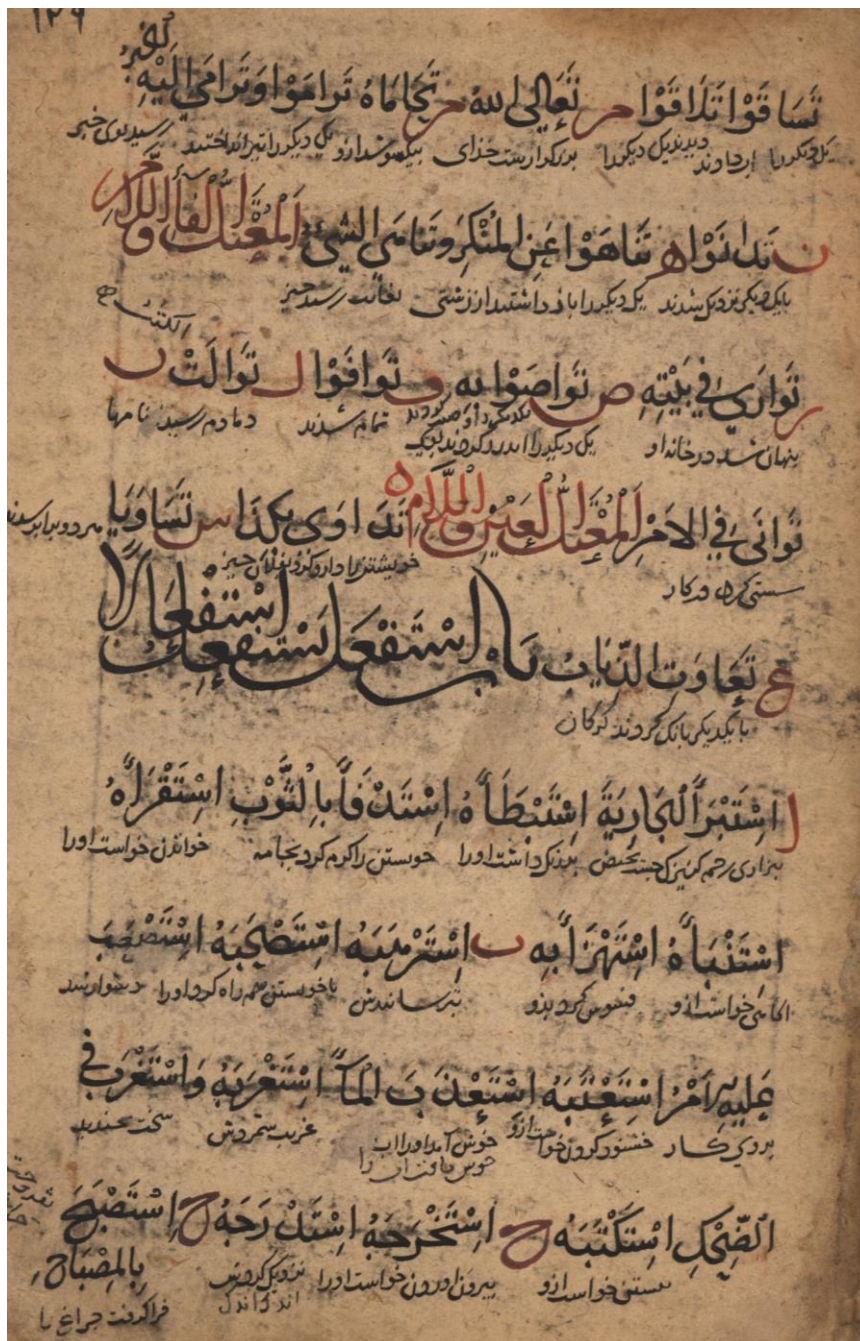 ١٢٩
الخبر
تَسَاقَوْا تَلَاقَوْا م تَعَالَى اللهُ م تَحَامَاهُ تَرَامَوْا وَتَرَامَى اِلَيْهِ
یک دیگر را دیدند یک دیگر را بزرگوارست خدای یک دیگر را تیر انداختند رسید بوی خبر
ن تَدَانَوْا ه تَنَاهَوْا عَنِ الْمُنْكَرِ وَتَنَاهَى الشَّيْءُ اَلْمُعْتَلُّ الْفَاءِ وَاللَّامِ
بایک دیگر نزدیک شدند یک دیگر را باز داشتند از زشتی بغایت رسید چیز
الكتب
ر تَوَارَى فِي بَيْتِهِ ص تَوَاصَوْا بِهِ ف تَوَافَوْا ل تَوَالَتْ ن
پنهان شد در خانه او یک دیگر را اندرز کردند بوی تمام شدند دمادم رسید نامها
تَوَانَى فِي الْاَمْرِ اَلْمُعْتَلُّ الْعَيْنِ وَاللَّامِ تَدَاوَى بِكَذَا س تَسَاوَيَا
سستی کرد در کار خویشتن را دارو کرد بفلان چیز هر دو برابر شدند
ع تَعَاوَتِ الذِّيَابُ بَابُ اسْتَفْعَلَ يَسْتَفْعِلُ اِسْتِفْعَالًا
با یکدیگر بانک کردند گرگان
ا اِسْتَبْرَأَ الْجَارِيَةَ اِسْتَبْطَأَهُ اِسْتَدْفَأَ بِالثَّوْبِ اِسْتَقْرَأَهُ
بیزاری رحم کنیزک جست بحیض بدرنک داشت اورا خویشتن را گرم کرد بجامه خواندن خواست اورا
اِسْتَنْبَأَهُ اِسْتَهْزَأَ بِهِ ب اِسْتَرْهَبَهُ اِسْتَصْحَبَهُ اِسْتَصْعَبَ
اکاهی خواست ازو فسوس کرد بدو بترسانیدش با خویشتن همراه کرد اورا دشوار شد
عَلَيْهِ اَمْرٌ اِسْتَعْتَبَهُ اِسْتَعْذَبَ الْمَاءَ اِسْتَغْرَبَهُ وَاسْتَغْرَبَ فِي
بروی کار خشنود کردن خواست ازو خوش آمد اورا آب غریب شمردش سخت خندید
خوش یافت آن را
الضِّحْكِ اِسْتَكْتَبَهُ ج اِسْتَخْرَجَهُ اِسْتَدْرَجَهُ ح اِسْتَصْبَحَ
خواست ازو بیرون آوردن خواست اورا نزدیک کردش
اندک اندک
بِالْمِصْبَاحِ
فرا گرفت چراغ را